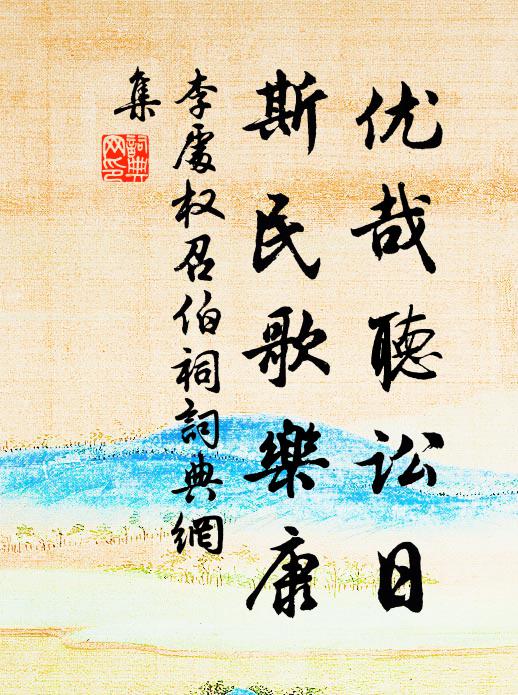 优哉聽讼日
斯民歌樂康
李處权召伯祠詞典網
集
詞典
网印